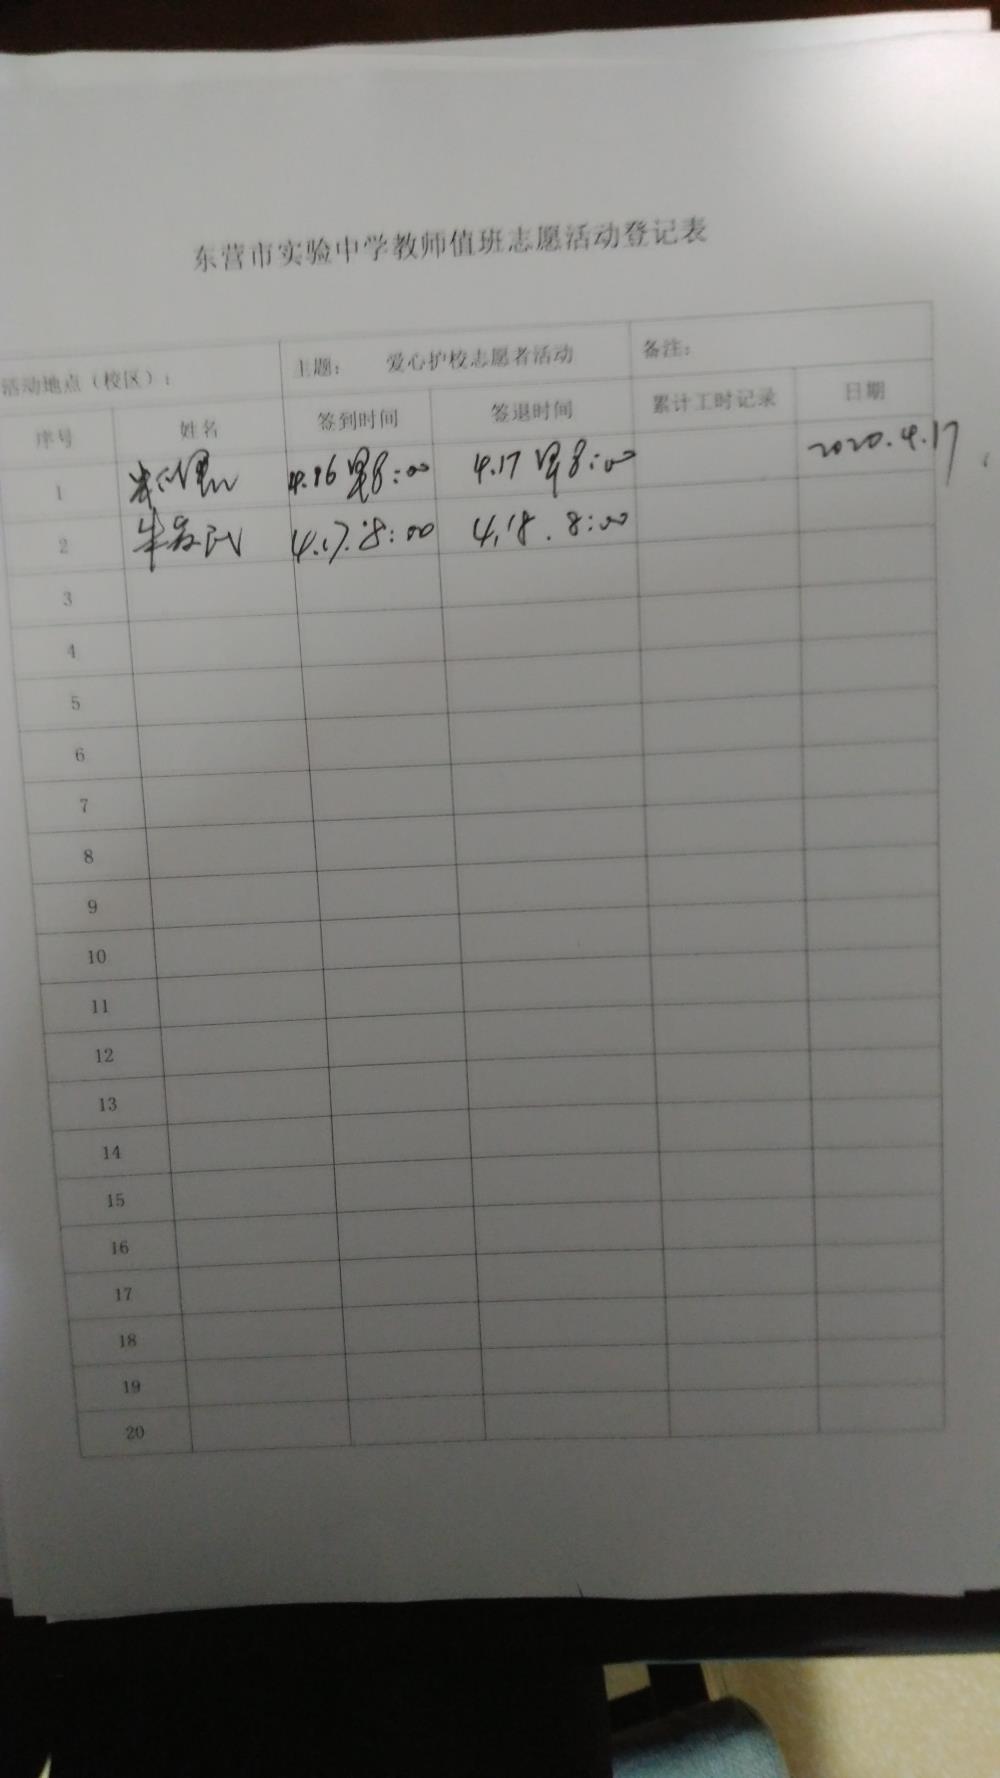 东营市实验中学教师值班志愿活动登记表
活动地点（校区）： 主题： 爱心护校志愿者活动 备注：
序号 姓名 签到时间 签退时间 累计工时记录 日期
1 4.16 早8:00 4.17 早8:00 2020.4.17
2 4.17.8:00 4.18.8:00
3
4
5
6
7
8
9
10
11
12
13
14
15
16
17
18
19
20